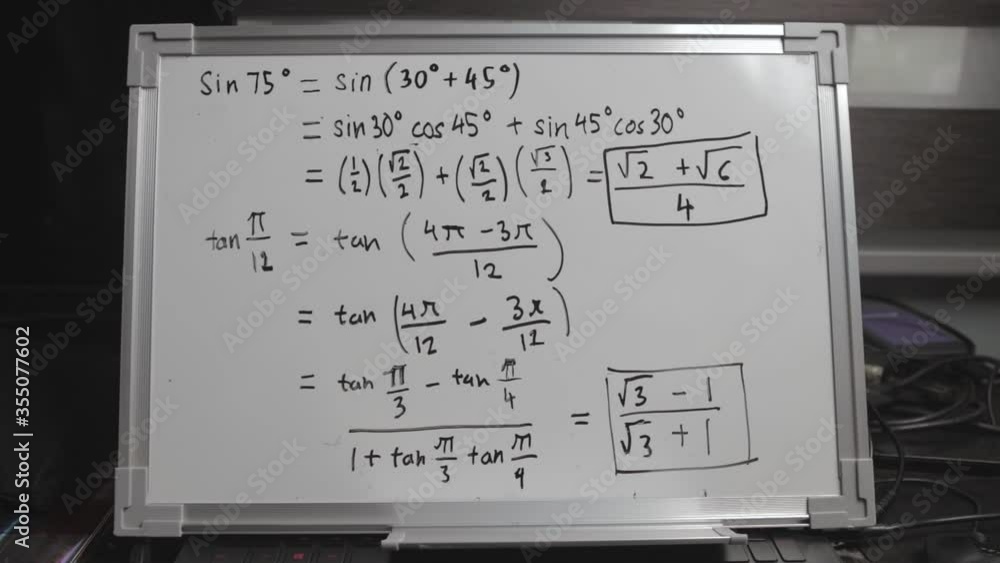 sin 75° = sin (30° + 45°)
= sin30° cos 45° + sin 45° cos 30°
= (1/2)(√2/2) + (√2/2)(√3/2) = (√2 + √6)/4
tan π/12 = tan ((4π - 3π)/12)
= tan (4π/12 - 3π/12)
= (tan π/3 - tan π/4)/(1 + tan π/3 tan π/4) = (√3 - 1)/(√3 + 1)
Adobe Stock | #355077602